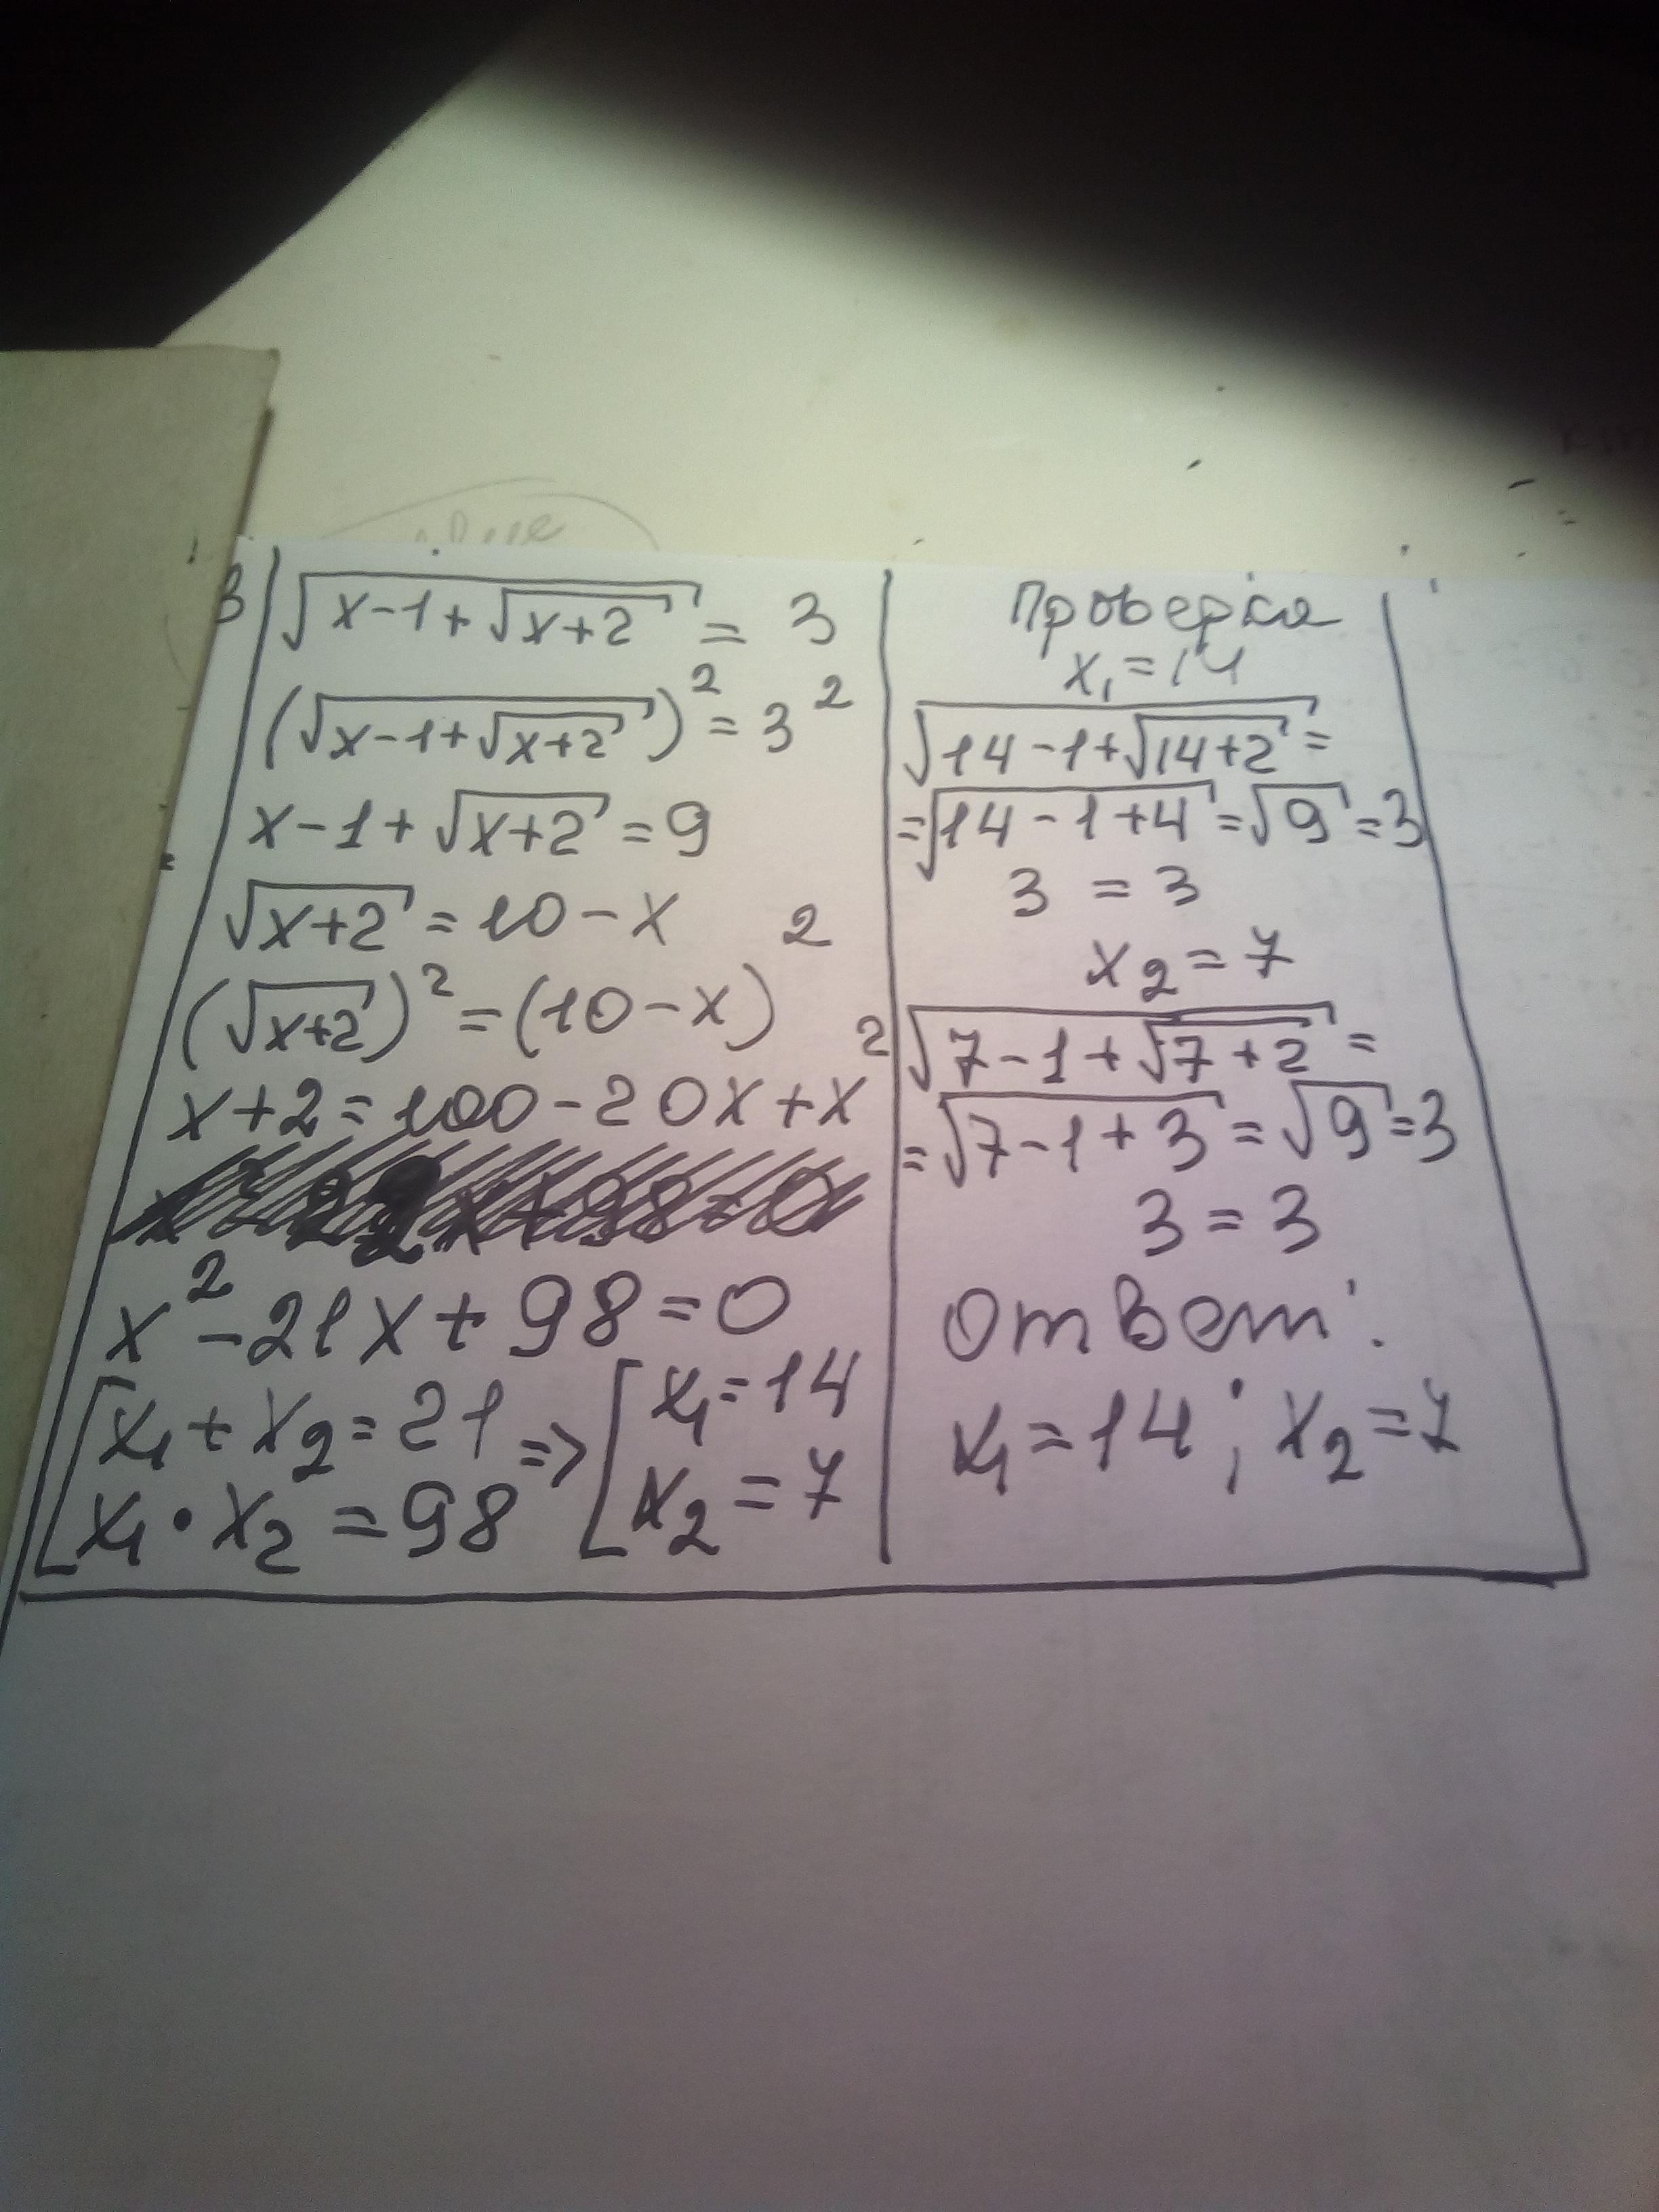 3
√(x-1+√(x+2)) = 3
(√(x-1+√(x+2)))² = 3²
x-1+√(x+2) = 9
√(x+2) = 10-x
(√(x+2))² = (10-x)²
x+2 = 100-20x+x²
x²-21x+98=0
[x₁+x₂=21 => [x₁=14
x₁·x₂=98 x₂=7
Проверка
x₁=14
√(14-1+√(14+2)) =
=√(14-1+4) =√9 =3
3 = 3
x₂=7
√(7-1+√(7+2)) =
=√(7-1+3) =√9 =3
3 = 3
Ответ:
x₁=14; x₂=7